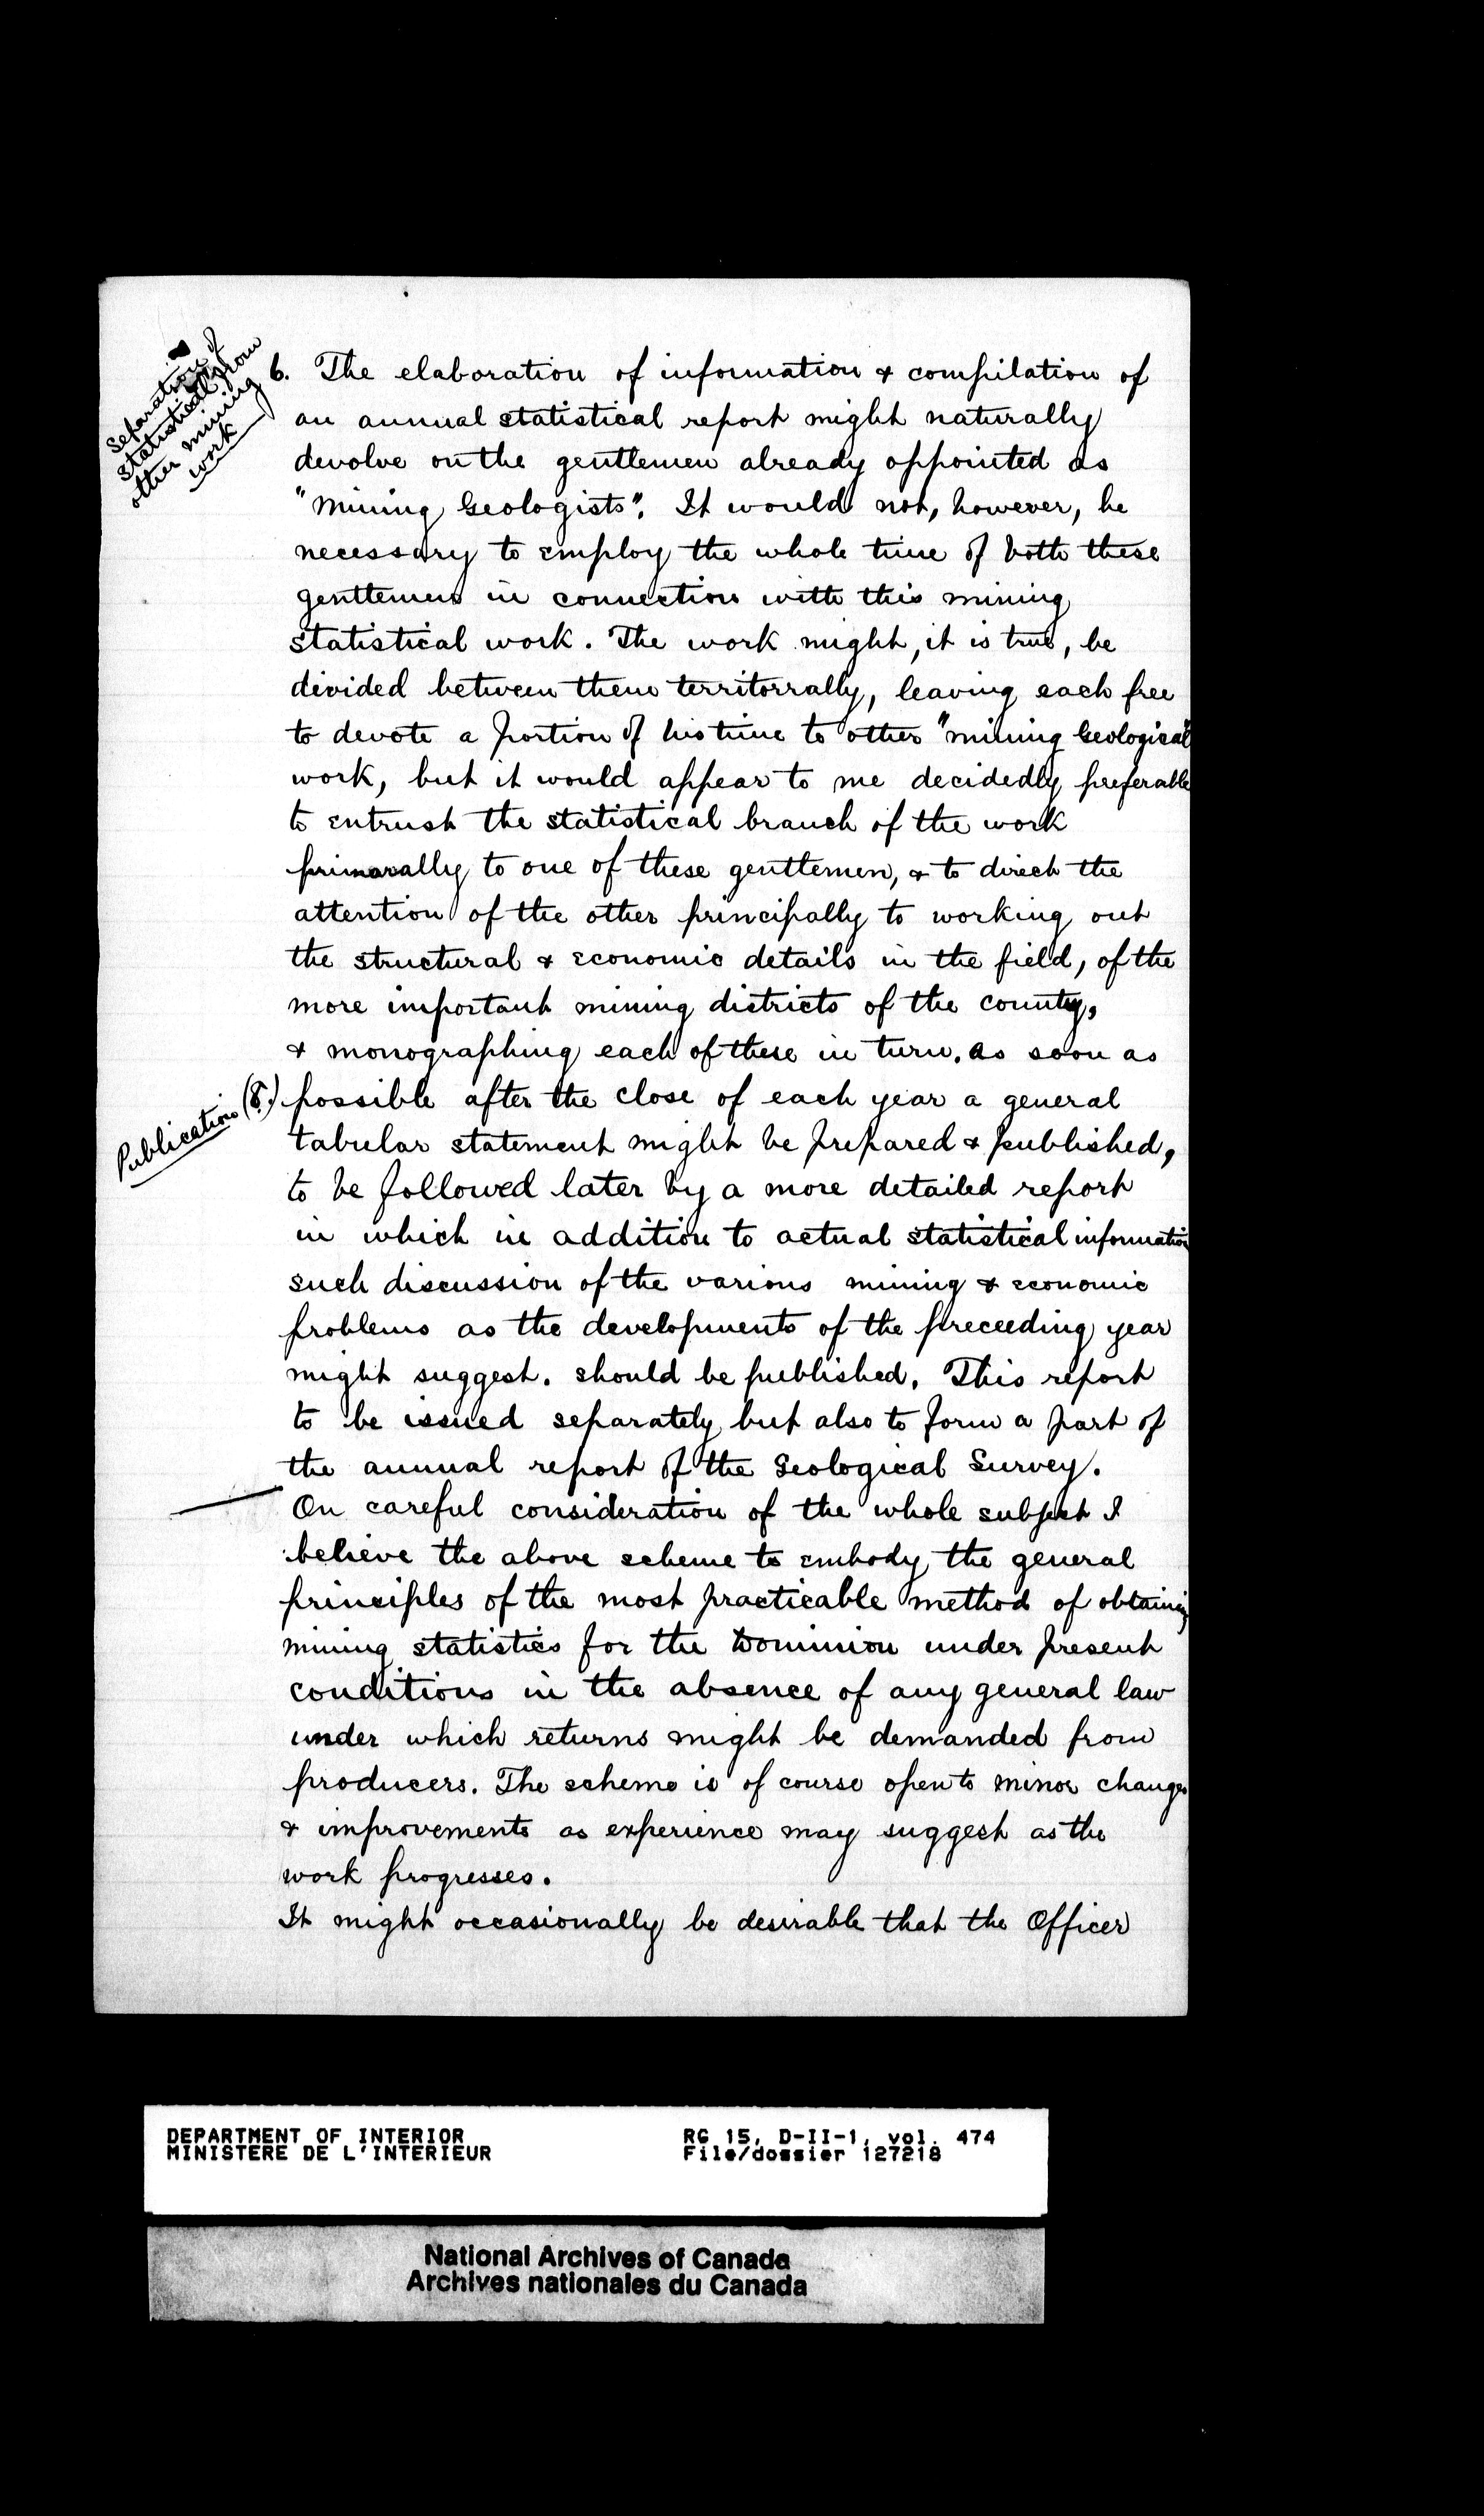 Separation of
statistical from
other mining
work
6. The elaboration of information & compilation of
an annual statistical report might naturally
devolve on the gentlemen already appointed as
"Mining Geologists". It would not, however, be
necessary to employ the whole time of both these
gentlemen in connection with this mining
statistical work. The work might, it is true, be
divided between them territorrally, leaving each free
to devote a portion of his time to other "mining Geological"
work, but it would appear to me decidedly preferable
to entrust the statistical branch of the work
primarally to one of these gentlemen, & to direct the
attention of the other principally to working out
the structural & economic details in the field, of the
more important mining districts of the country,
& monographing each of these in turn. As soon as
Publication (8.) possible after the close of each year a general
tabular statement might be prepared & published,
to be followed later by a more detailed report
in which in addition to actual statistical information
such discussion of the various mining & economic
problems as the developments of the preceeding year
might suggest. should be published. This report
to be issued separately but also to form a part of
the annual report of the Geological Survey.
On careful consideration of the whole subject I
believe the above scheme to embody the general
principles of the most practicable method of obtaining
mining statistics for the Dominion under present
conditions in the absence of any general law
under which returns might be demanded from
producers. The scheme is of course open to minor changes
& improvements as experience may suggest as the
work progresses.
It might occasionally be desirable that the Officer
DEPARTMENT OF INTERIOR RG 15, D-II-1, vol. 474
MINISTERE DE L'INTERIEUR File/dossier 127218
National Archives of Canada
Archives nationales du Canada